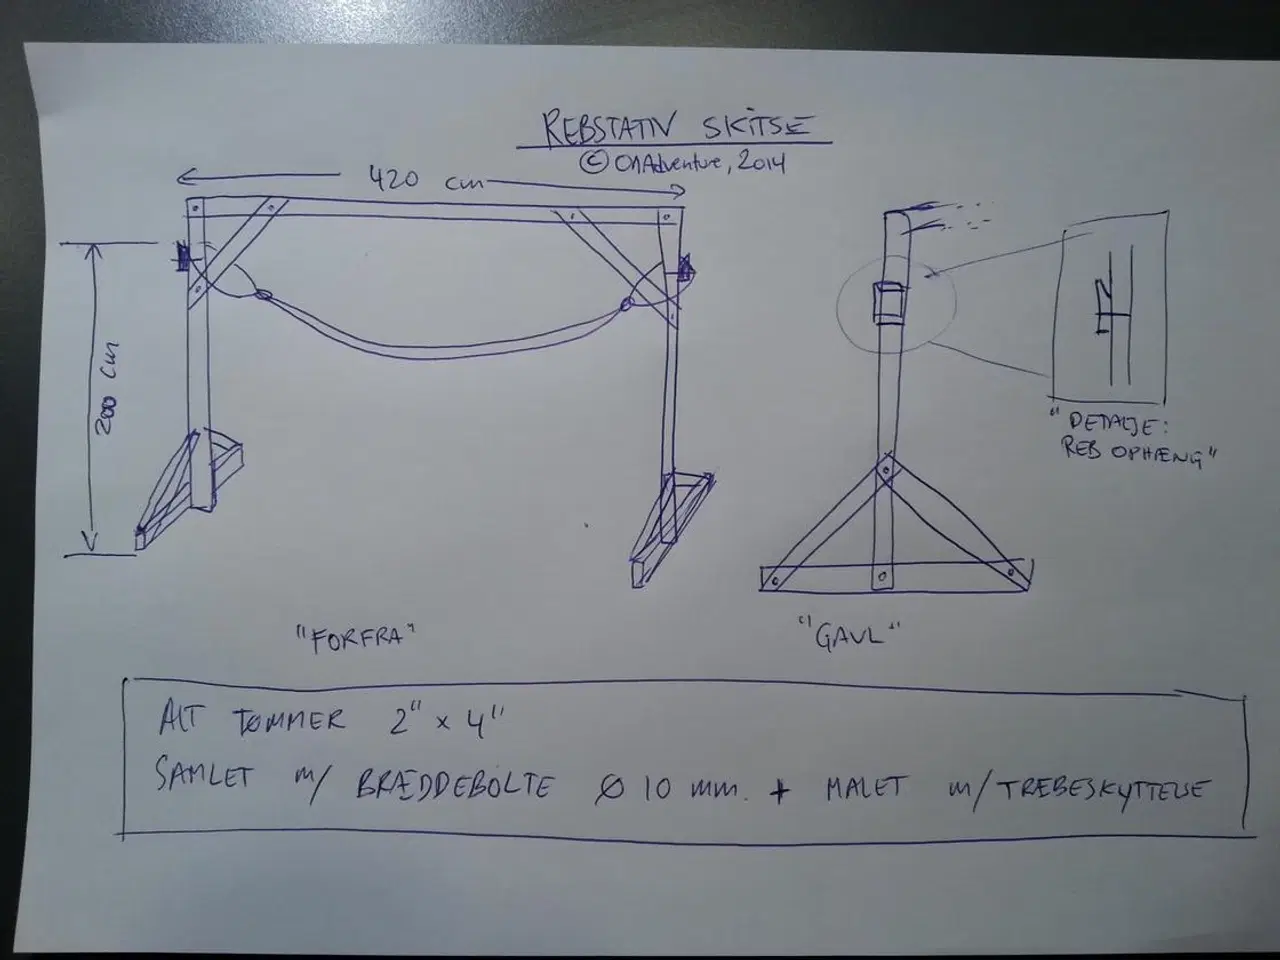 REBSTATIV SKITSE
© ONAdventure, 2014
420 cm
200 cm
"DETALJE:
REB OPHÆNG"
"FORFRA"
"GAVL"
ALT TØMMER 2" x 4"
SAMLET m/ BRÆDDEBOLTE Ø 10 mm. + MALET m/TRÆBESKYTTELSE